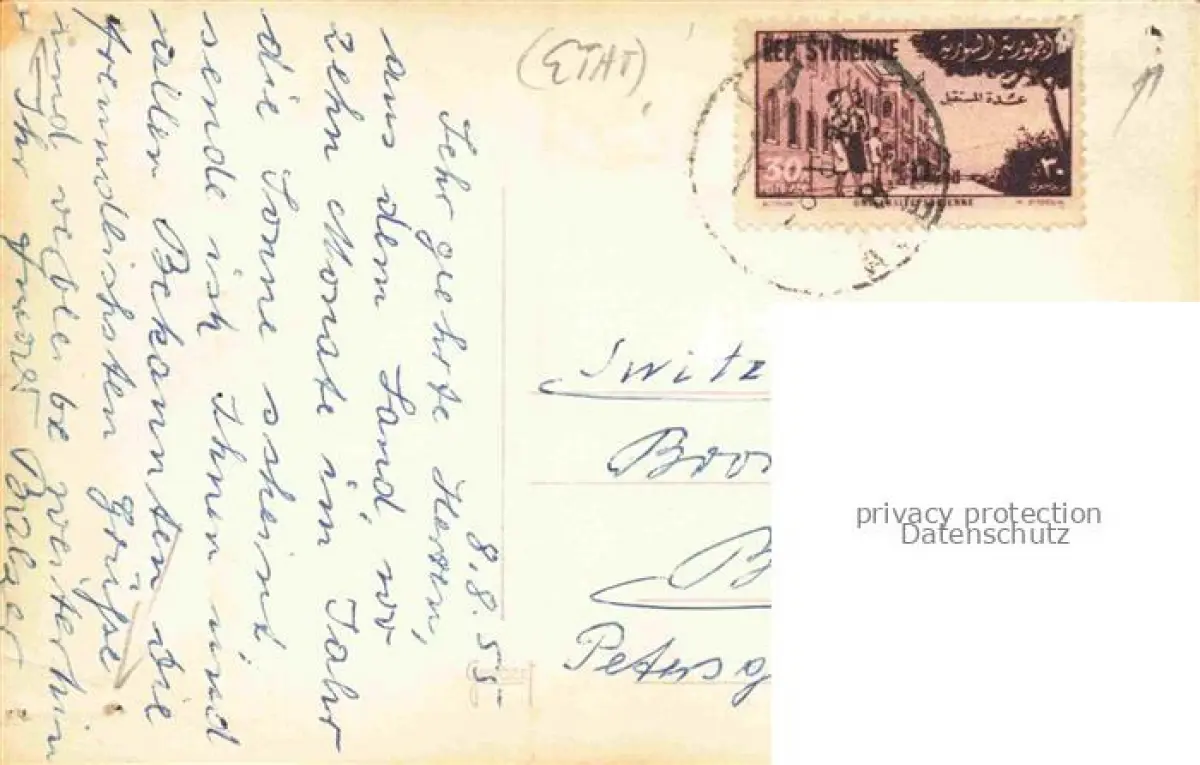 8.8.55
Sehr geehrte Herren,
aus dem Land, wo
zehn Monate im Jahr
die Sonne scheint
sende ich Ihnen und
allen Bekannten die
freundlichsten Grüße
und verbleibe weiterhin
Ihr
(ETAT)
REP. SYRIENNE
الجمهورية السورية
عدة المستقبل
30
٣٠
Switz
Boo
B
Peters
privacy protection
Datenschutz